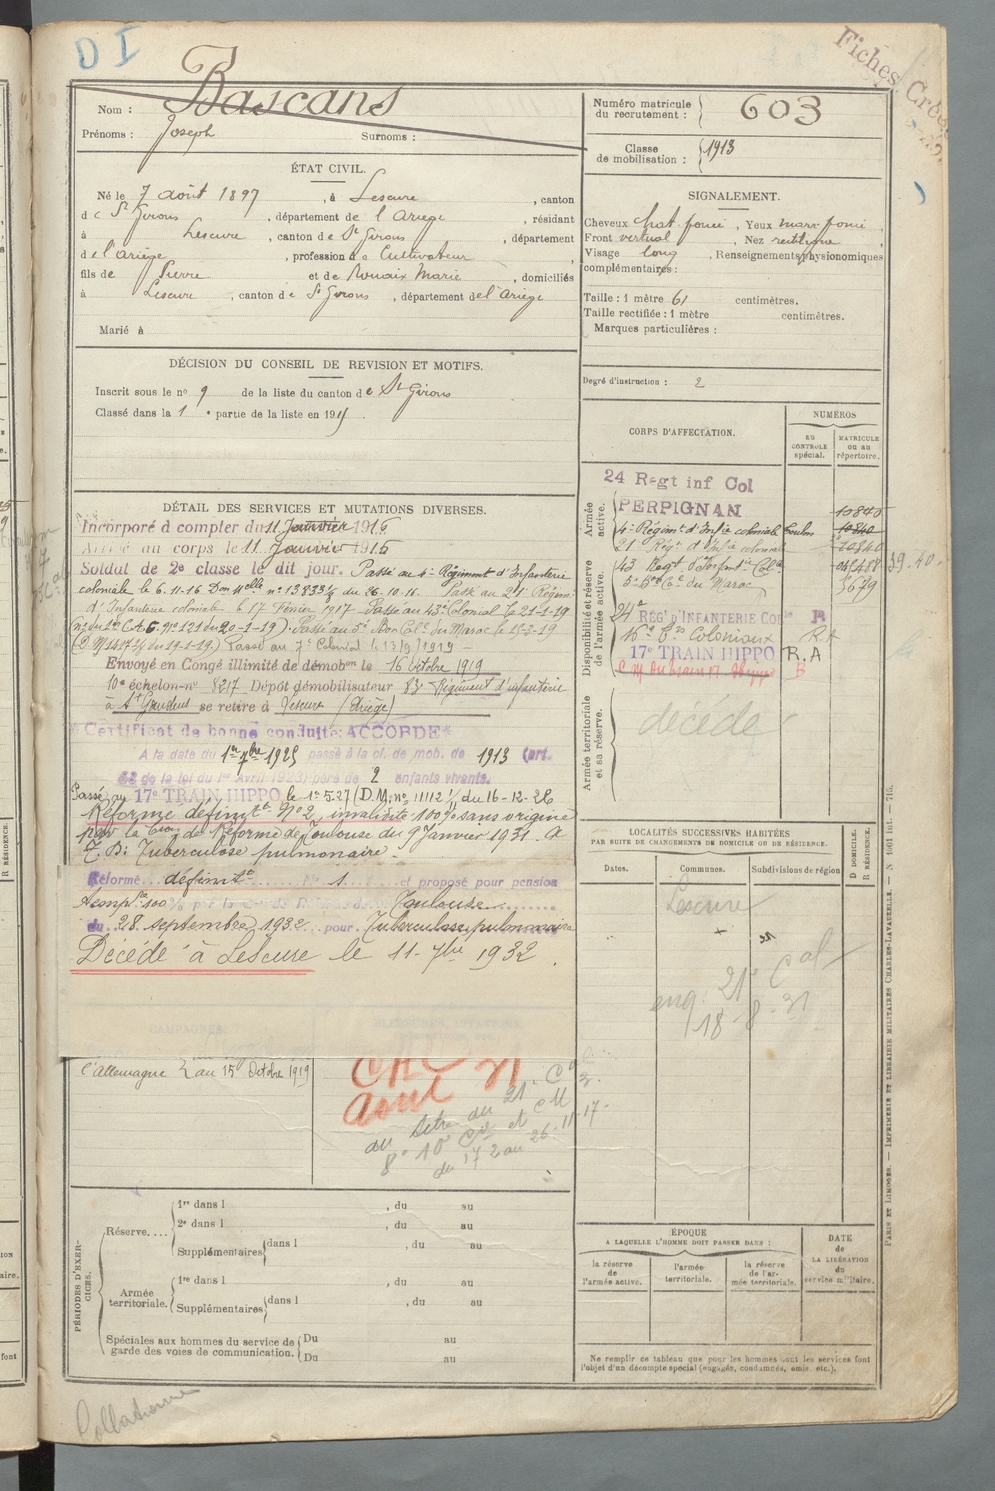 D I
Fiches Créées
Nom : Bascans
Prénoms : Joseph Surnoms :
Numéro matricule du recrutement : 603
Classe de mobilisation : 1913
ÉTAT CIVIL.
Né le 7 août 1897, à Lescure, canton
de St Girons, département de l'Ariège, résidant
à Lescure, canton de St Girons, département
de l'Ariège, profession de Cultivateur,
fils de Pierre et de Rouaix Marie, domiciliés
à Lescure, canton de St Girons, département de l'Ariège
Marié à
SIGNALEMENT.
Cheveux chat. foncé, Yeux marr. foncé,
Front vertical, Nez rectiligne,
Visage long, Renseignements physionomiques
complémentaires :
Taille : 1 mètre 61 centimètres.
Taille rectifiée : 1 mètre centimètres.
Marques particulières :
Degré d'instruction : 2
DÉCISION DU CONSEIL DE REVISION ET MOTIFS.
Inscrit sous le no 9 de la liste du canton de St Girons
Classé dans la 1e partie de la liste en 191
DÉTAIL DES SERVICES ET MUTATIONS DIVERSES.
Incorporé à compter du 11 Janvier 1916
Arrivé au corps le 11 Janvier 1916
Soldat de 2e classe le dit jour. Passé au 4e Régiment d'Infanterie
coloniale le 6-11-16 Don Melle no 13833 1/8 du 26-10-16. Passé au 21e Régiment
d'Infanterie coloniale le 17 Février 1917 - Passé au 43e Colonial le 21-1-19
(no du 1er C.A.C. No 121 du 20-1-19). Passé au 5e Bon Cal. du Maroc le 15-3-19
(D.M. 1417 du 19-1-19.) Passé au 7e Colonial le 13/9/1919 -
Envoyé en Congé illimité de démobon le 16 octobre 1919
10e échelon no 8217 Dépôt démobilisateur 83e Régiment d'infanterie
à St Gaudens se retire à Lescure (Ariège)
Certificat de bonne conduite: ACCORDÉ
A la date du 1er 7bre 1925 passé à la cl. de mob. de 1913 (art.
62 de la loi du 1er Avril 1923) père de 2 enfants vivants.
Passé au 17e TRAIN HIPPO le 1e 5.27 (D.M. no 11112 1/11 du 16-12-26
Réforme définit.ve No 2, invalidité 100% sans origine
par la Con de Réforme de Toulouse du 9 Janvier 1931. A
T. Bi Tuberculose pulmonaire.
Réformé définit.t No 1 et proposé pour pension
100% par la Toulouse
du 28 septembre 1932 pour Tuberculose pulmonaire
Décédé à Lescure le 11-7bre 1932.
CORPS D'AFFECTATION.
NUMÉROS
AU CONTRÔLE spécial.
MATRICULE ou au répertoire.
Armée active.
24 Regt inf Col
PERPIGNAN
10840
4e Régimt d'Infie coloniale Toulon 10840
21e Régt d'Infie coloniale 10840
43 Regt d'Infant.ie Cole
5e Bon Cal du Maroc
39.40.
Disponibilité et réserve de l'armée active.
24e REG. D'INFANTERIE Cole R
Coloniaux R A
17e TRAIN HIPPO R.A
Armée territoriale et sa réserve.
décédé
LOCALITÉS SUCCESSIVES HABITÉES
PAR SUITE DE CHANGEMENTS DE DOMICILE OU DE RÉSIDENCE.
Dates. Communes. Subdivisions de région
D DOMICILE.
R RÉSIDENCE.
Lescure
eng. 21e Cal
18-8-31
CAMPAGNES.
BLESSURES, CITATIONS,
l'Allemagne au 15 Octobre 1919
Août 31
du 17 2 au 26-11-17.
PÉRIODES D'EXERCICES.
Réserve....
1re dans l , du au
2e dans l , du au
Supplémentaires dans l , du au
Armée territoriale.
1re dans l , du au
Supplémentaires dans l , du au
Spéciales aux hommes du service de garde des voies de communication.
Du au
Du au
ÉPOQUE
A LAQUELLE L'HOMME DOIT PASSER DANS :
la réserve de l'armée active.
l'armée territoriale.
la réserve de l'armée territoriale.
DATE de LA LIBÉRATION du service militaire.
Ne remplir ce tableau que pour les hommes dont les services font
l'objet d'un décompte spécial (engagés, condamnés, omis, etc.).
PARIS ET LIMOGES. — IMPRIMERIE ET LIBRAIRIE MILITAIRES CHARLES-LAVAUZELLE. — N 1661 int. — 716.
Collationné